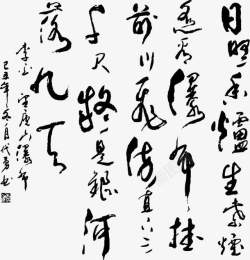 日照香爐生紫煙
遥看瀑布挂
前川飛流直下三
千尺疑是銀河
落九天
李白望庐山瀑布